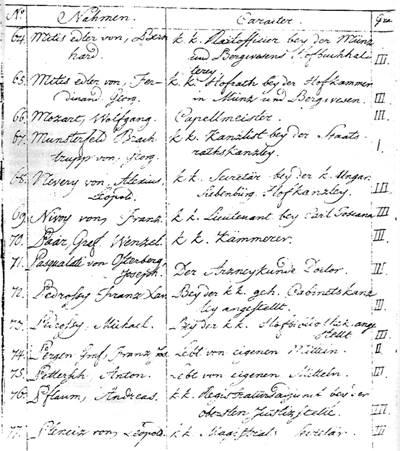 No. Nahmen. Caracter. Gra
64. Mitis edler von, Bern k. k. Raitofficier bey der Münz
hard. und Bergwesens Hofbuchhal
terey. III.
65. Mitis edler von, Fer k. k. Hofrath bey der Hofkammer
dinand Georg. in Münz und Bergwesen. III.
66. Mozart, Wolfgang. Capellmeister. III.
67. Munsterfeld von, Georg. k. k. Kanzlist bey der Staats
rathskanzley. I.
68. Nevery von, Alexius k. k. Secretär bey der k. Ungar.
Leopold. Siebenbürg. Hofkanzley. III
69. Nivoy von, Franz. k. k. Lieutenant bey Carl Toscana III
70. Paar, Graf Wenzel. k. k. Kammerer. III.
71. Pasqualati von Osterberg
Joseph. Der Arzneykunde Doctor. III.
72. Pedrossy Franz Xav. Bey der k. k. geh. Cabinetskanz
ley angestellt. III
73. Michael. Bey der k. k. Hofbibliothek ange
stellt III
74. Pergen Graf, Franz Lebt von eigenen Mitteln. II.
75. Anton. Lebt von eigenen Mitteln. III.
76. Pflaum, Andreas. k. k. Registratursadjunct bey der
obersten Justizstelle. III.
77. Plenciz von, Leopold. k. k. Magistral Secretär. III.